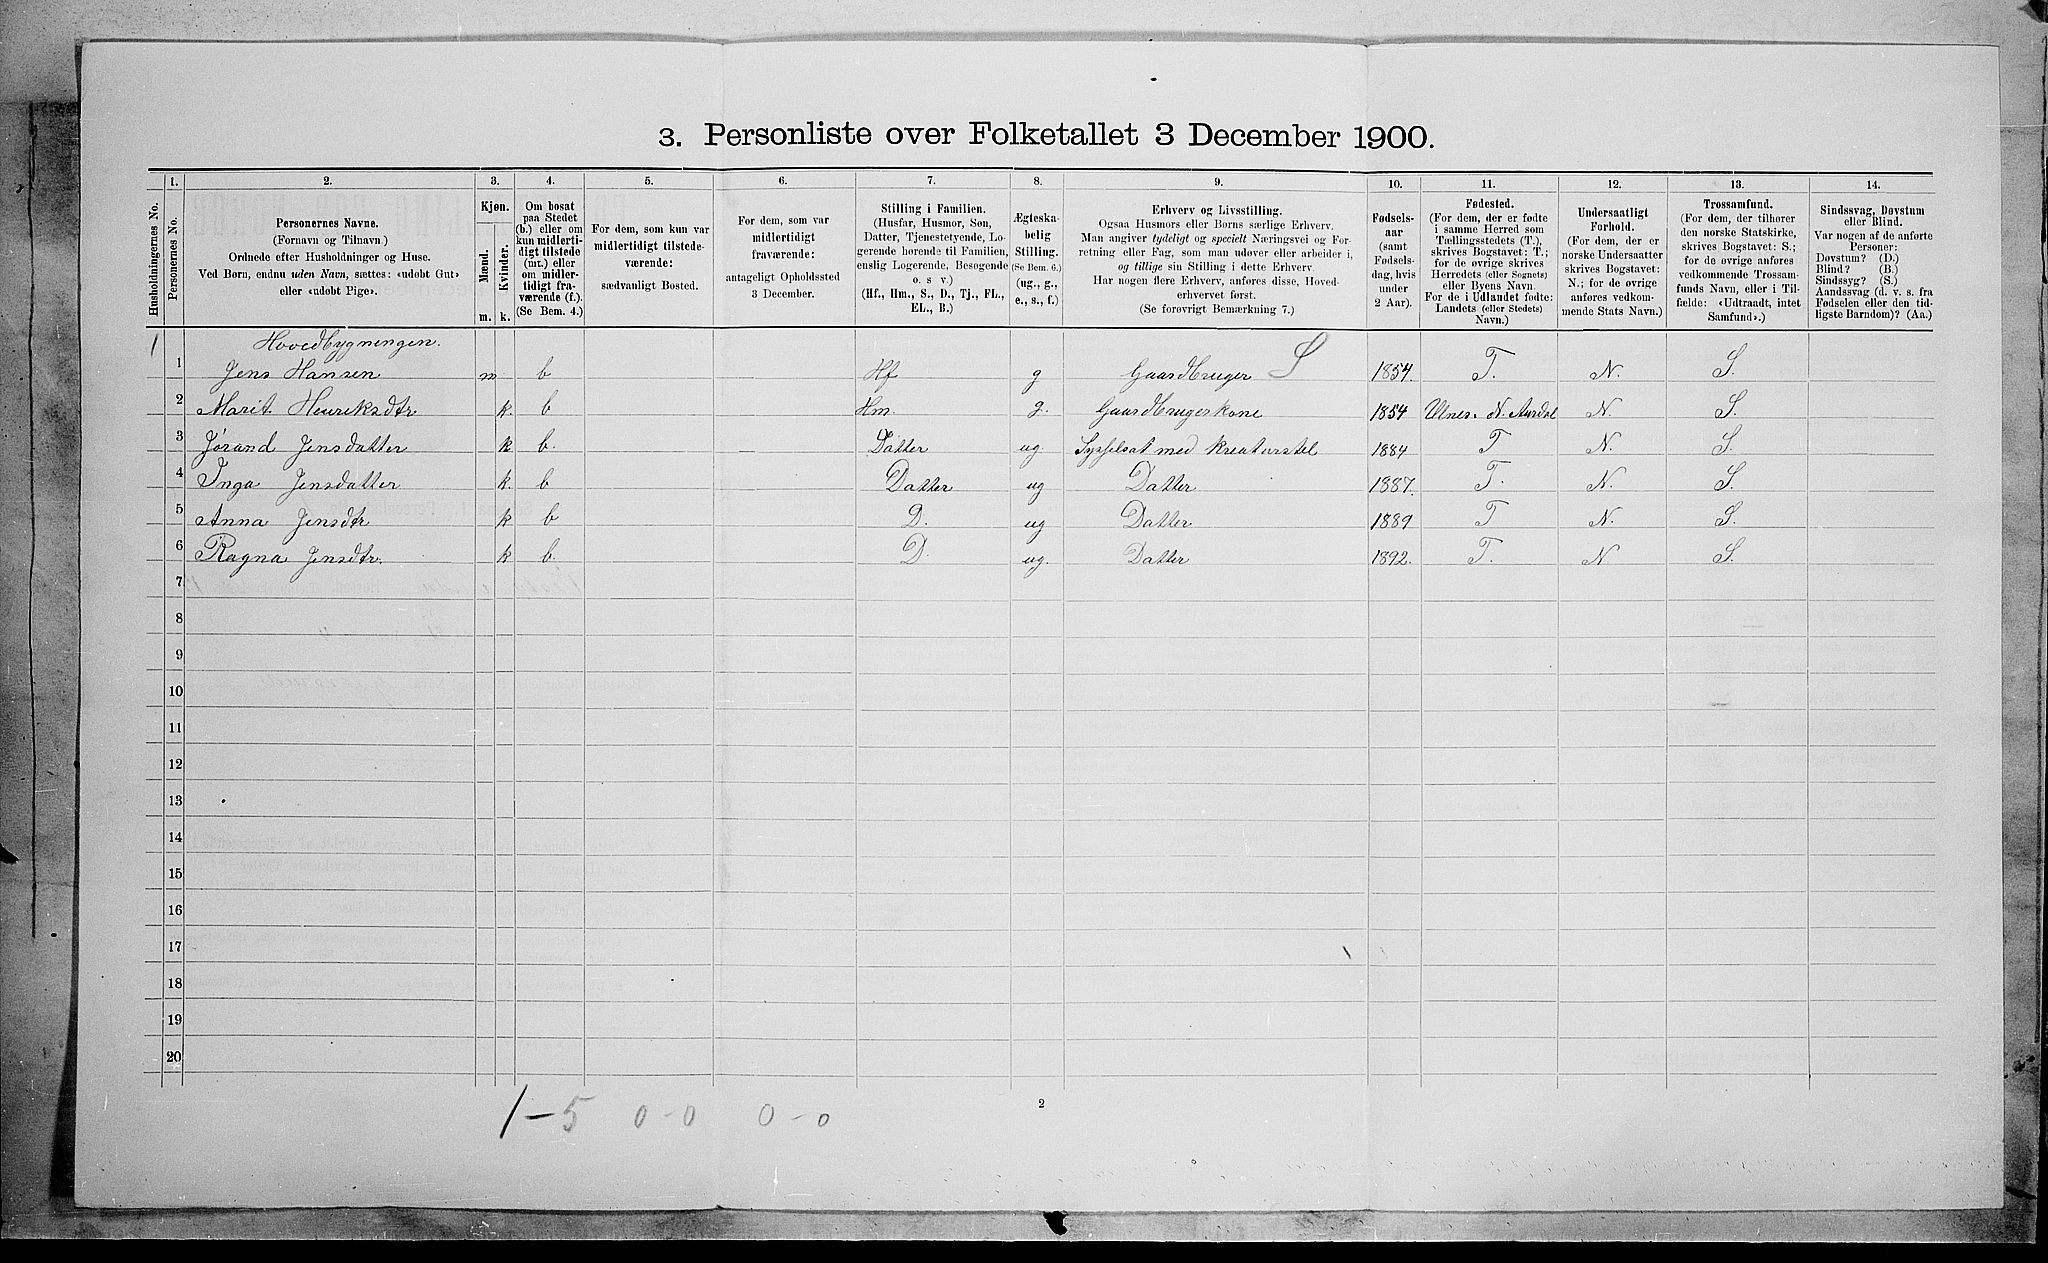 3. Personliste over Folketallet 3 December 1900.
Husholdningernes No.
1.
Personernes No.
2.
Personernes Navne.
(Fornavn og Tilnavn)
Ordnede efter Husholdninger og Huse.
Ved Børn, endnu uden Navn, sættes: «udøbt Gut»
eller «udøbt Pige».
3.
Kjøn.
Mænd.
m.
Kvinder.
k.
4.
Om bosat
paa Stedet
(b.) eller om
kun midlerti-
digt tilstede
(mt.) eller
om midler-
tidigt fra-
værende (f.).
(Se Bem. 4.)
5.
For dem, som kun var
midlertidigt tilstede-
værende:
sædvanligt Bosted.
6.
For dem, som var
midlertidigt
fraværende:
antageligt Opholdssted
3 December.
7.
Stilling i Familien.
(Husfar, Husmor, Søn,
Datter, Tjenestetyende, Lo-
gerende hørende til Familien,
enslig Logerende, Besøgende
o. s. v.)
(Hf., Hm., S., D., Tj., FL.,
EL., B.)
8.
Ægteska-
belig
Stilling.
(Se Bem. 6.)
(ug., g.,
e., s., f.)
9.
Erhverv og Livsstilling.
Ogsaa Husmors eller Børns særlige Erhverv.
Man angiver tydeligt og specielt Næringsvei og For-
retning eller Fag, som man udøver eller arbeider i,
og tillige sin Stilling i dette Erhverv.
Har nogen flere Erhverv, anføres disse, Hoved-
erhvervet først.
(Se forøvrigt Bemærkning 7.)
10.
Fødsels-
aar
(samt
Fødsels-
dag, hvis
under
2 Aar).
11.
Fødested.
(For dem, der er fødte
i samme Herred som
Tællingsstedets (T.),
skrives Bogstavet: T.;
for de øvrige skrives
Herredets (eller Sognets)
eller Byens Navn.
For de i Udlandet fødte:
Landets (eller Stedets)
Navn.)
12.
Undersaatligt
Forhold.
(For dem, der er
norske Undersaatter
skrives Bogstavet:
N.; for de øvrige
anføres vedkom-
mende Stats Navn.)
13.
Trossamfund.
(For dem, der tilhører
den norske Statskirke,
skrives Bogstavet: S.;
for de øvrige anføres
vedkommende Trossam-
funds Navn, eller i Til-
fælde: «Udtraadt, intet
Samfund».)
14.
Sindssvag, Døvstum
eller Blind.
Var nogen af de anførte
Personer:
Døvstum? (D.)
Blind? (B.)
Sindssyg? (S.)
Aandssvag (d. v. s. fra
Fødselen eller den tid-
ligste Barndom)? (Aa.)
1 Hovedbygningen.
1 Jens Hansen m b Hf g Gaardbruger S 1854. T. N. S.
2 Marit Henriksdtr k. b Hm. g. Gaardbrugerkone 1854 Ulnes. N. Aurdal N. S.
3 Jørand Jensdatter k b. Datter ug. Sysselsat med kreaturstel 1884 T N. S.
4 Inga Jensdatter k. b Datter ug Datter 1887. T. N. S.
5 Anna Jensdtr k b D. ug Datter 1889 T N. S.
6 Ragna Jensdtr. k b. D. ug. Datter 1892. T. N S
7
8
9
10
11
12
13
14
15
16
17
18
19
20
1-5 0-0 0-0
2